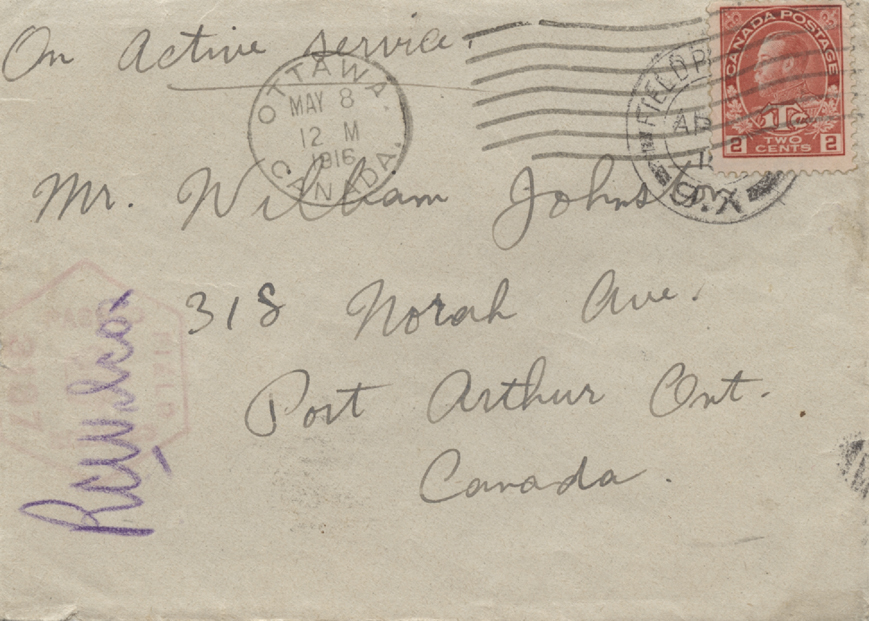 On Active service.
CANADA POSTAGE
1T
2 TWO CENTS 2
FIELD P
AP
D.X
OTTAWA.
MAY 8
12 M
1916
CANADA.
Mr. William Johnston
318 Norah Ave.
Port Arthur Ont.
Canada.
FIELD
3197